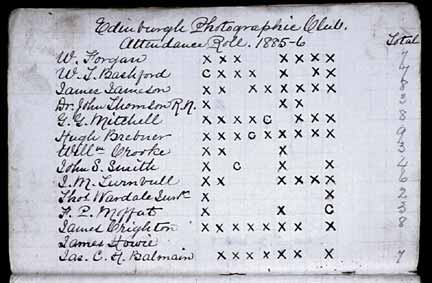 Edinburgh Photographic Club.
Attendance Roll. 1885-6 Total
W. Forgan x x x x x x x 7
W. T. Bashford C x x x x x x
James Jameson x x x x x x x x 8
Dr. John Thomson R.N. x x x 3
G. G. Mitchell x x x x C x x x 8
Hugh Brebner x x x C x x x x x 9
Willm Crooke x x x 3
John S. Smith x C x x 4
I. M. Turnbull x x x x x x 6
Thos Wardale Junr. x x 2
F. P. Moffat x x C 3
James Crighton x x x x x x x x 8
James Howie
Jas. C. H. Balmain x x x x x x x 7